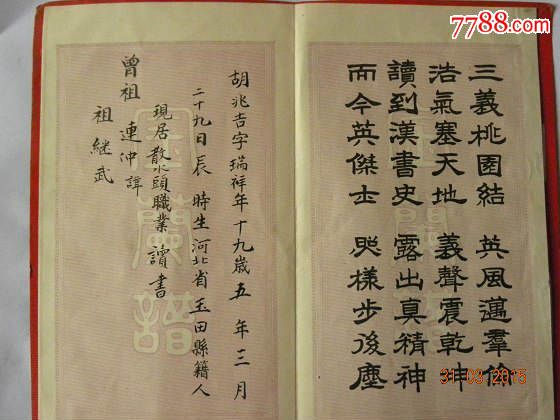 7788.com
三義桃園結 英風邁羣倫
浩氣塞天地 義聲震乾坤
讀到漢書史 露出真精神
而今英傑士 照樣步後塵
胡兆吉字瑞祥年十九歲五年三月
二十九日辰時生河北省玉田縣籍人
現居 頭職業讀書
曾祖 連仲諱
祖 繼武
金蘭譜
金蘭譜
31-03-2015